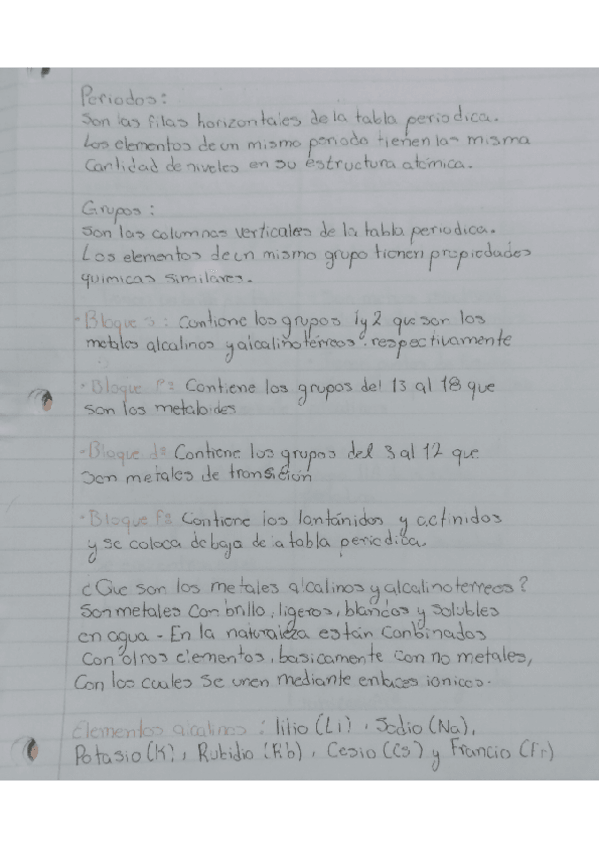 Periodos:
Son las filas horizontales de la tabla periodica.
Los elementos de un mismo periodo tienen la misma
Cantidad de niveles en su estructura atómica.
Grupos:
Son las columnas verticales de la tabla periodica.
Los elementos de un mismo grupo tienen propiedades
quimicas similares.
-Bloque s: Contiene los grupos 1 y 2 que son los
metales alcalinos y alcalinotérreos. respectivamente
-Bloque P: Contiene los grupos del 13 al 18 que
son los metaloides
-Bloque d: Contiene los grupos del 3 al 12 que
son metales de transición
-Bloque F: Contiene los lantánidos y actínidos
y se coloca debajo de la tabla periodica.
¿Que son los metales alcalinos y alcalinoterreos?
Son metales con brillo, ligeros, blandos y solubles
en agua - En la naturaleza están conbinados
Con otros elementos, basicamente con no metales,
Con los cuales se unen mediante enlaces ionicos.
Elementos alcalinos: litio (Li), Sodio (Na),
Potasio (K), Rubidio (Rb), Cesio (Cs) y Francio (Fr)